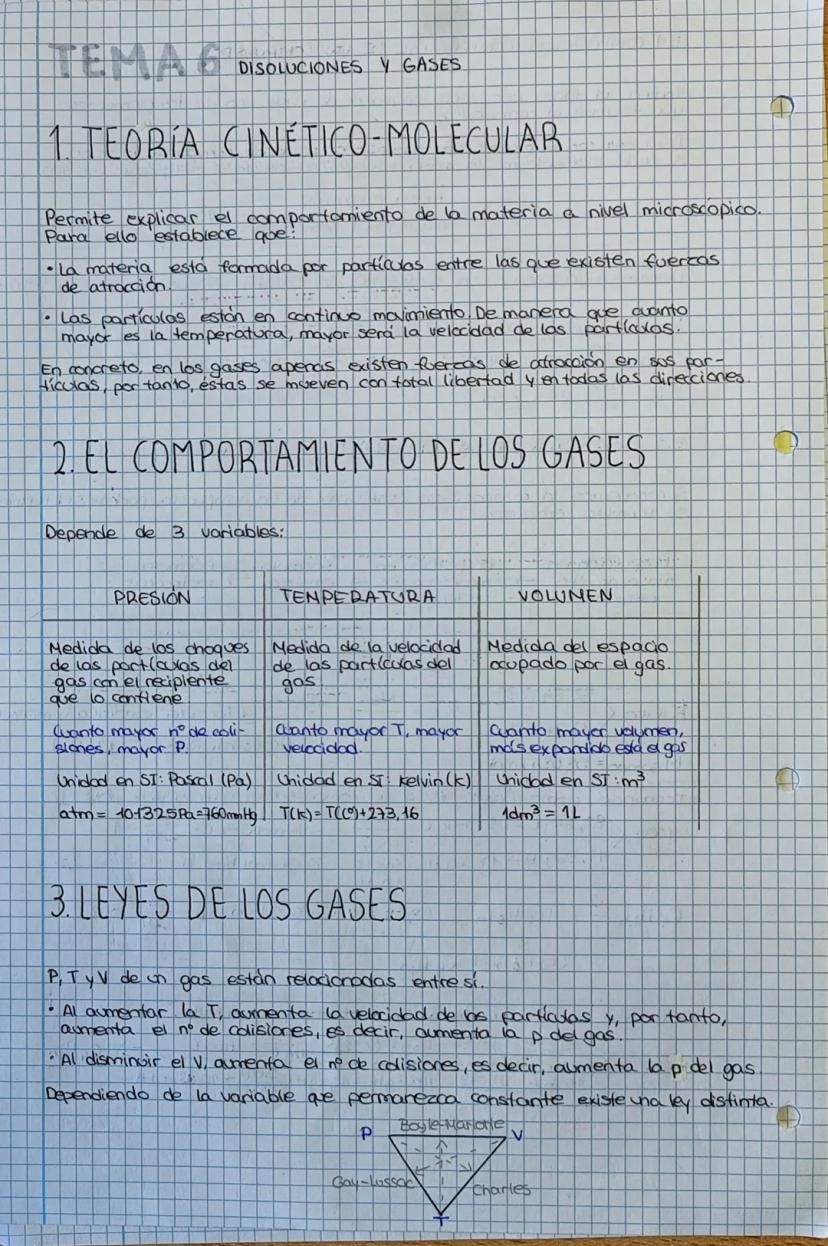 TEMA 6 DISOLUCIONES Y GASES
1. TEORÍA CINÉTICO-MOLECULAR
Permite explicar el comportamiento de la materia a nivel microscópico.
Para ello establece que:
• La materia está formada por partículas entre las que existen fuerzas
de atracción.
• Las partículas están en continuo movimiento. De manera que cuanto
mayor es la temperatura, mayor será la velocidad de las partículas.
En concreto, en los gases apenas existen fuerzas de atracción en sus par-
tículas, por tanto, éstas se mueven con total libertad y en todas las direcciones.
2. EL COMPORTAMIENTO DE LOS GASES
Depende de 3 variables:
PRESIÓN TEMPERATURA VOLUMEN
Medida de los choques Medida de la velocidad Medida del espacio
de las partículas del de las partículas del ocupado por el gas.
gas con el recipiente gas
que lo contiene
Cuanto mayor nº de coli- Cuanto mayor T, mayor Cuanto mayor volumen,
siones, mayor P. velocidad. más expandido está el gas
Unidad en SI: Pascal (Pa) Unidad en SI: Kelvin (K) Unidad en SI: m³
atm = 101325Pa=760mmHg T(K) = T(Cº)+273,16 1dm³ = 1L
3. LEYES DE LOS GASES
P, T y V de un gas están relacionadas entre sí.
• Al aumentar la T, aumenta la velocidad de las partículas y, por tanto,
aumenta el nº de colisiones, es decir, aumenta la p del gas.
• Al disminuir el V, aumenta el nº de colisiones, es decir, aumenta la p del gas.
Dependiendo de la variable que permanezca constante existe una ley distinta.
P Boyle-Mariotte V
Gay-Lussac Charles
T